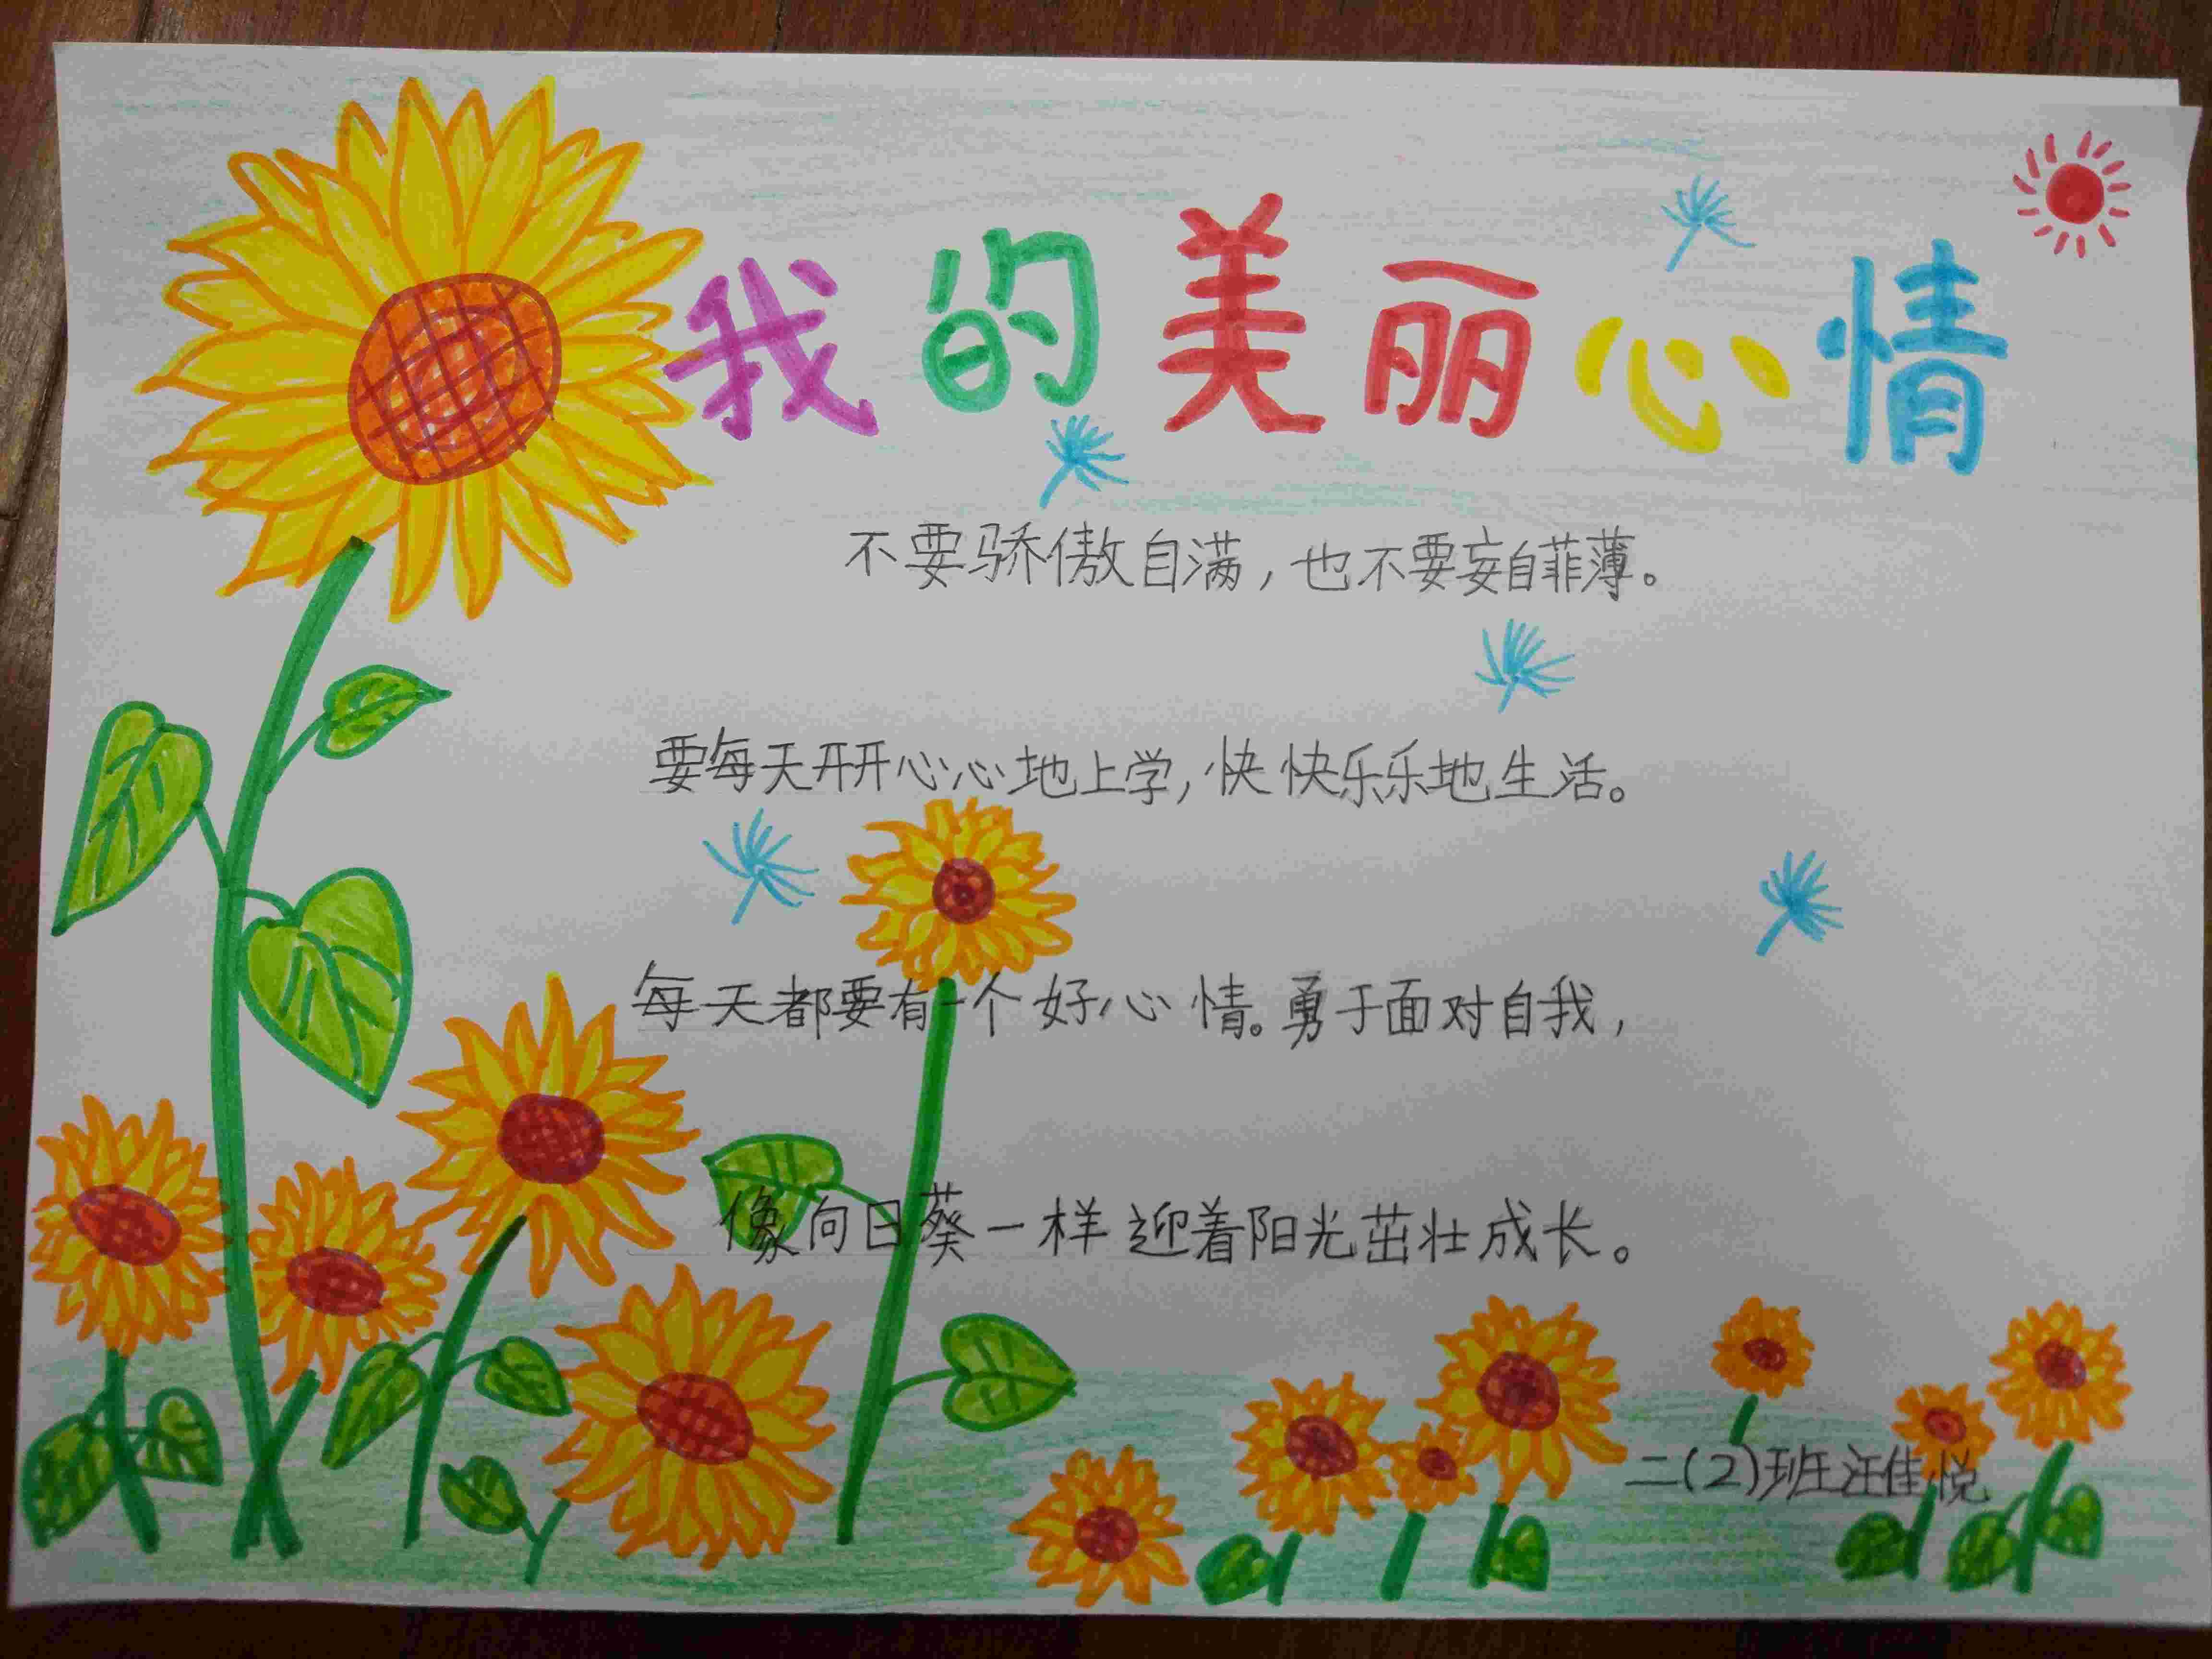 我的美丽心情
不要骄傲自满，也不要妄自菲薄。
要每天开开心心地上学，快快乐乐地生活。
每天都要有一个好心情。勇于面对自我，
像向日葵一样迎着阳光茁壮成长。
二(2)班汪佳悦